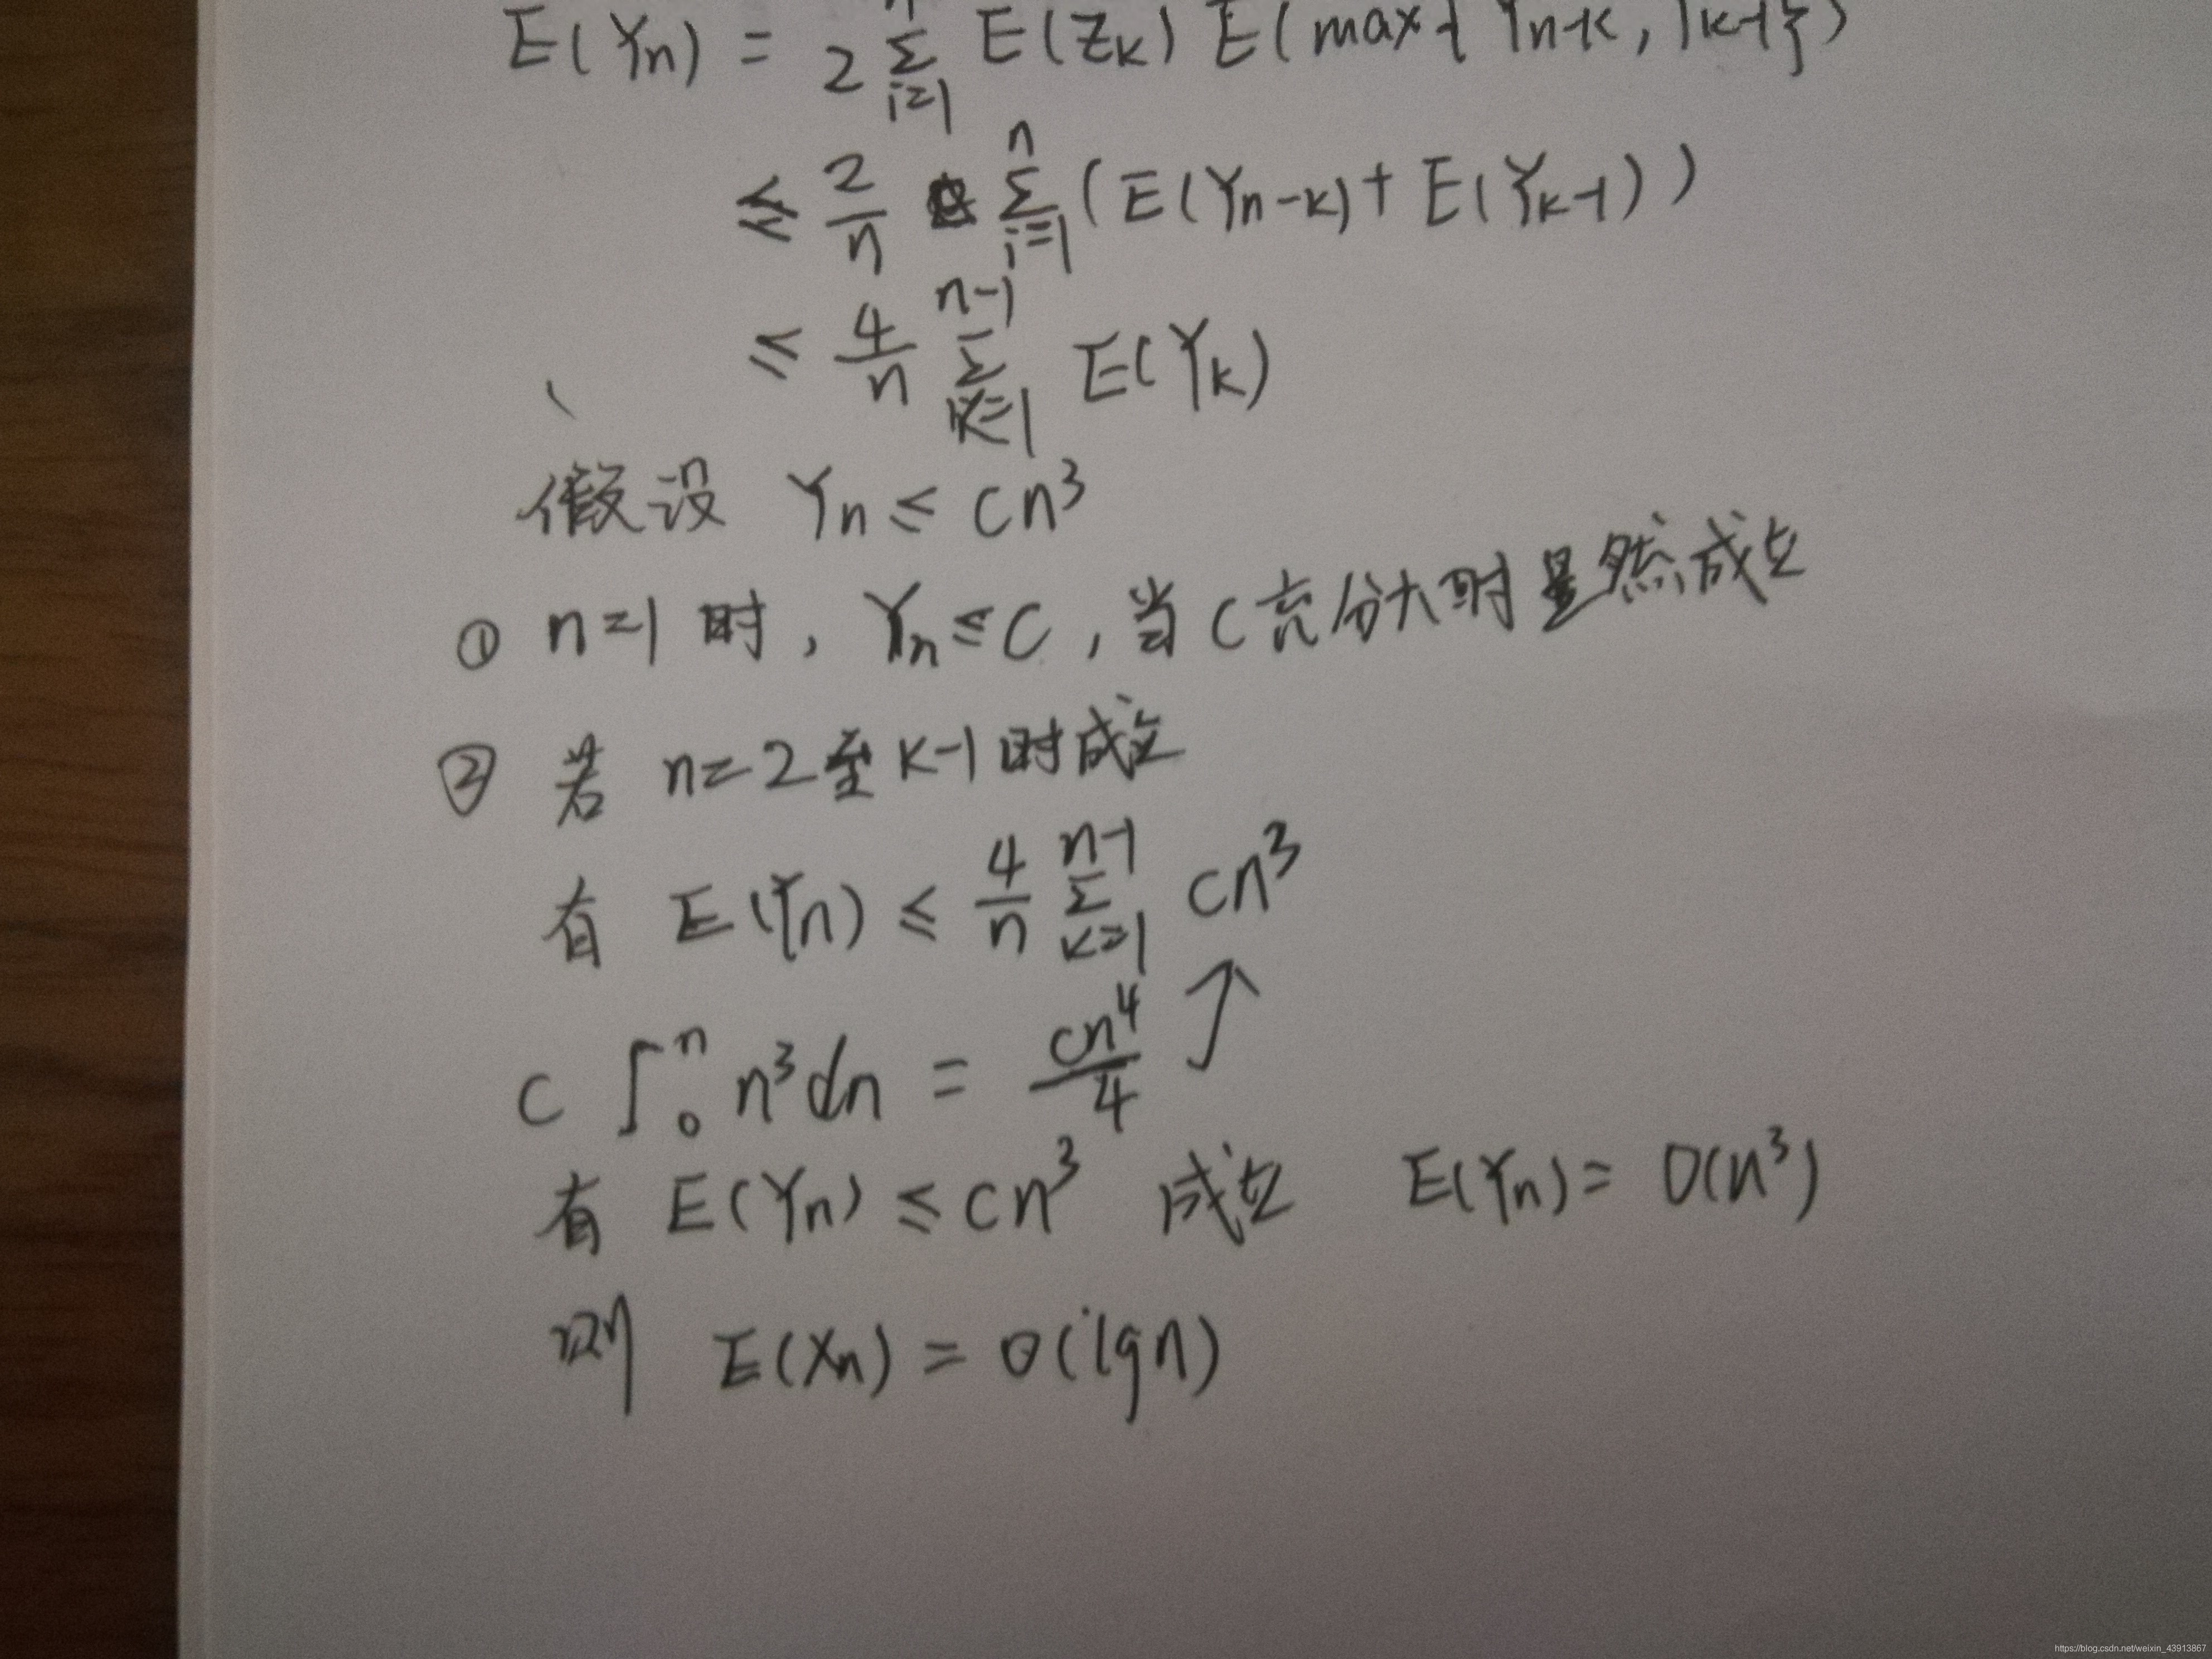 E(Yn) = 2 Σ i=1 n E(Zk) E(max{Yn-k, Yk-1})
≤ 2/n Σ i=1 n (E(Yn-k) + E(Yk-1))
≤ 4/n Σ k=1 n-1 E(Yk)
假设 Yn ≤ cn³
① n=1 时, Yn ≤ C, 当 C 充分大时显然成立
② 若 n=2 至 k-1 时成立
有 E(Yn) ≤ 4/n Σ k=1 n-1 cn³
c ∫₀ⁿ n³dn = cn⁴/4 ↗
有 E(Yn) ≤ cn³ 成立 E(Yn) = O(n³)
则 E(Xn) = O(lgn)
https://blog.csdn.net/weixin_43913867